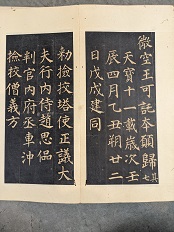 微空王可託本願歸其七
天寶十一載歲次壬
辰四月乙丑朔廿二
日戊戌建同
勑撿挍塔使正議大
夫行内侍趙思偘
判官内府丞車沖
撿挍僧義方